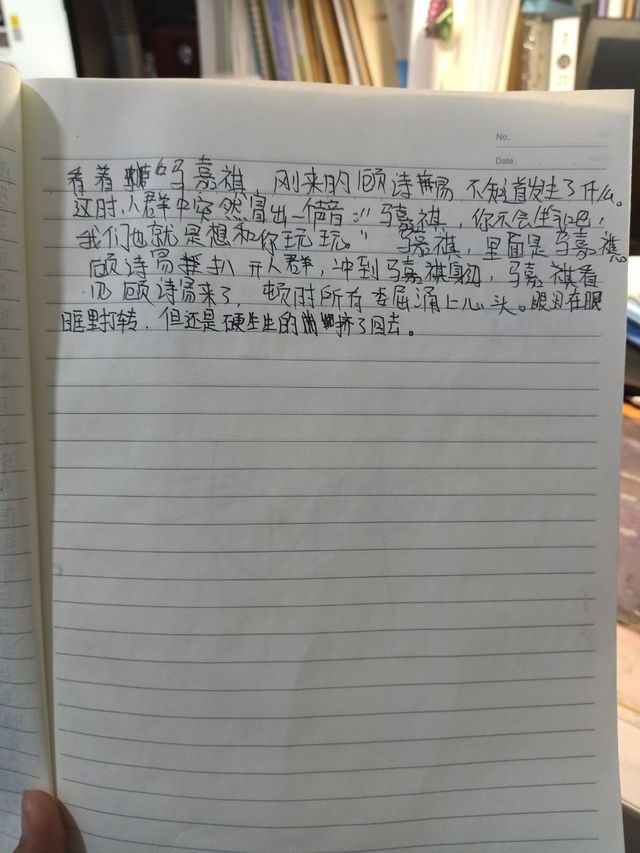 No.
Date
看着 马嘉祺，刚来的顾诗 易不知道发生了什么。
这时，人群中突然冒出一 声音："马嘉祺，你不会生气吧，
我们也就是想和你玩玩。" 马嘉祺，里面是马嘉祺。
顾诗易 扒开人群，冲到马嘉祺身边，马嘉祺看
见顾诗易来了，顿时所有委屈涌上心头。眼泪在眼
眶里打转，但还是硬生生的 挤了回去。